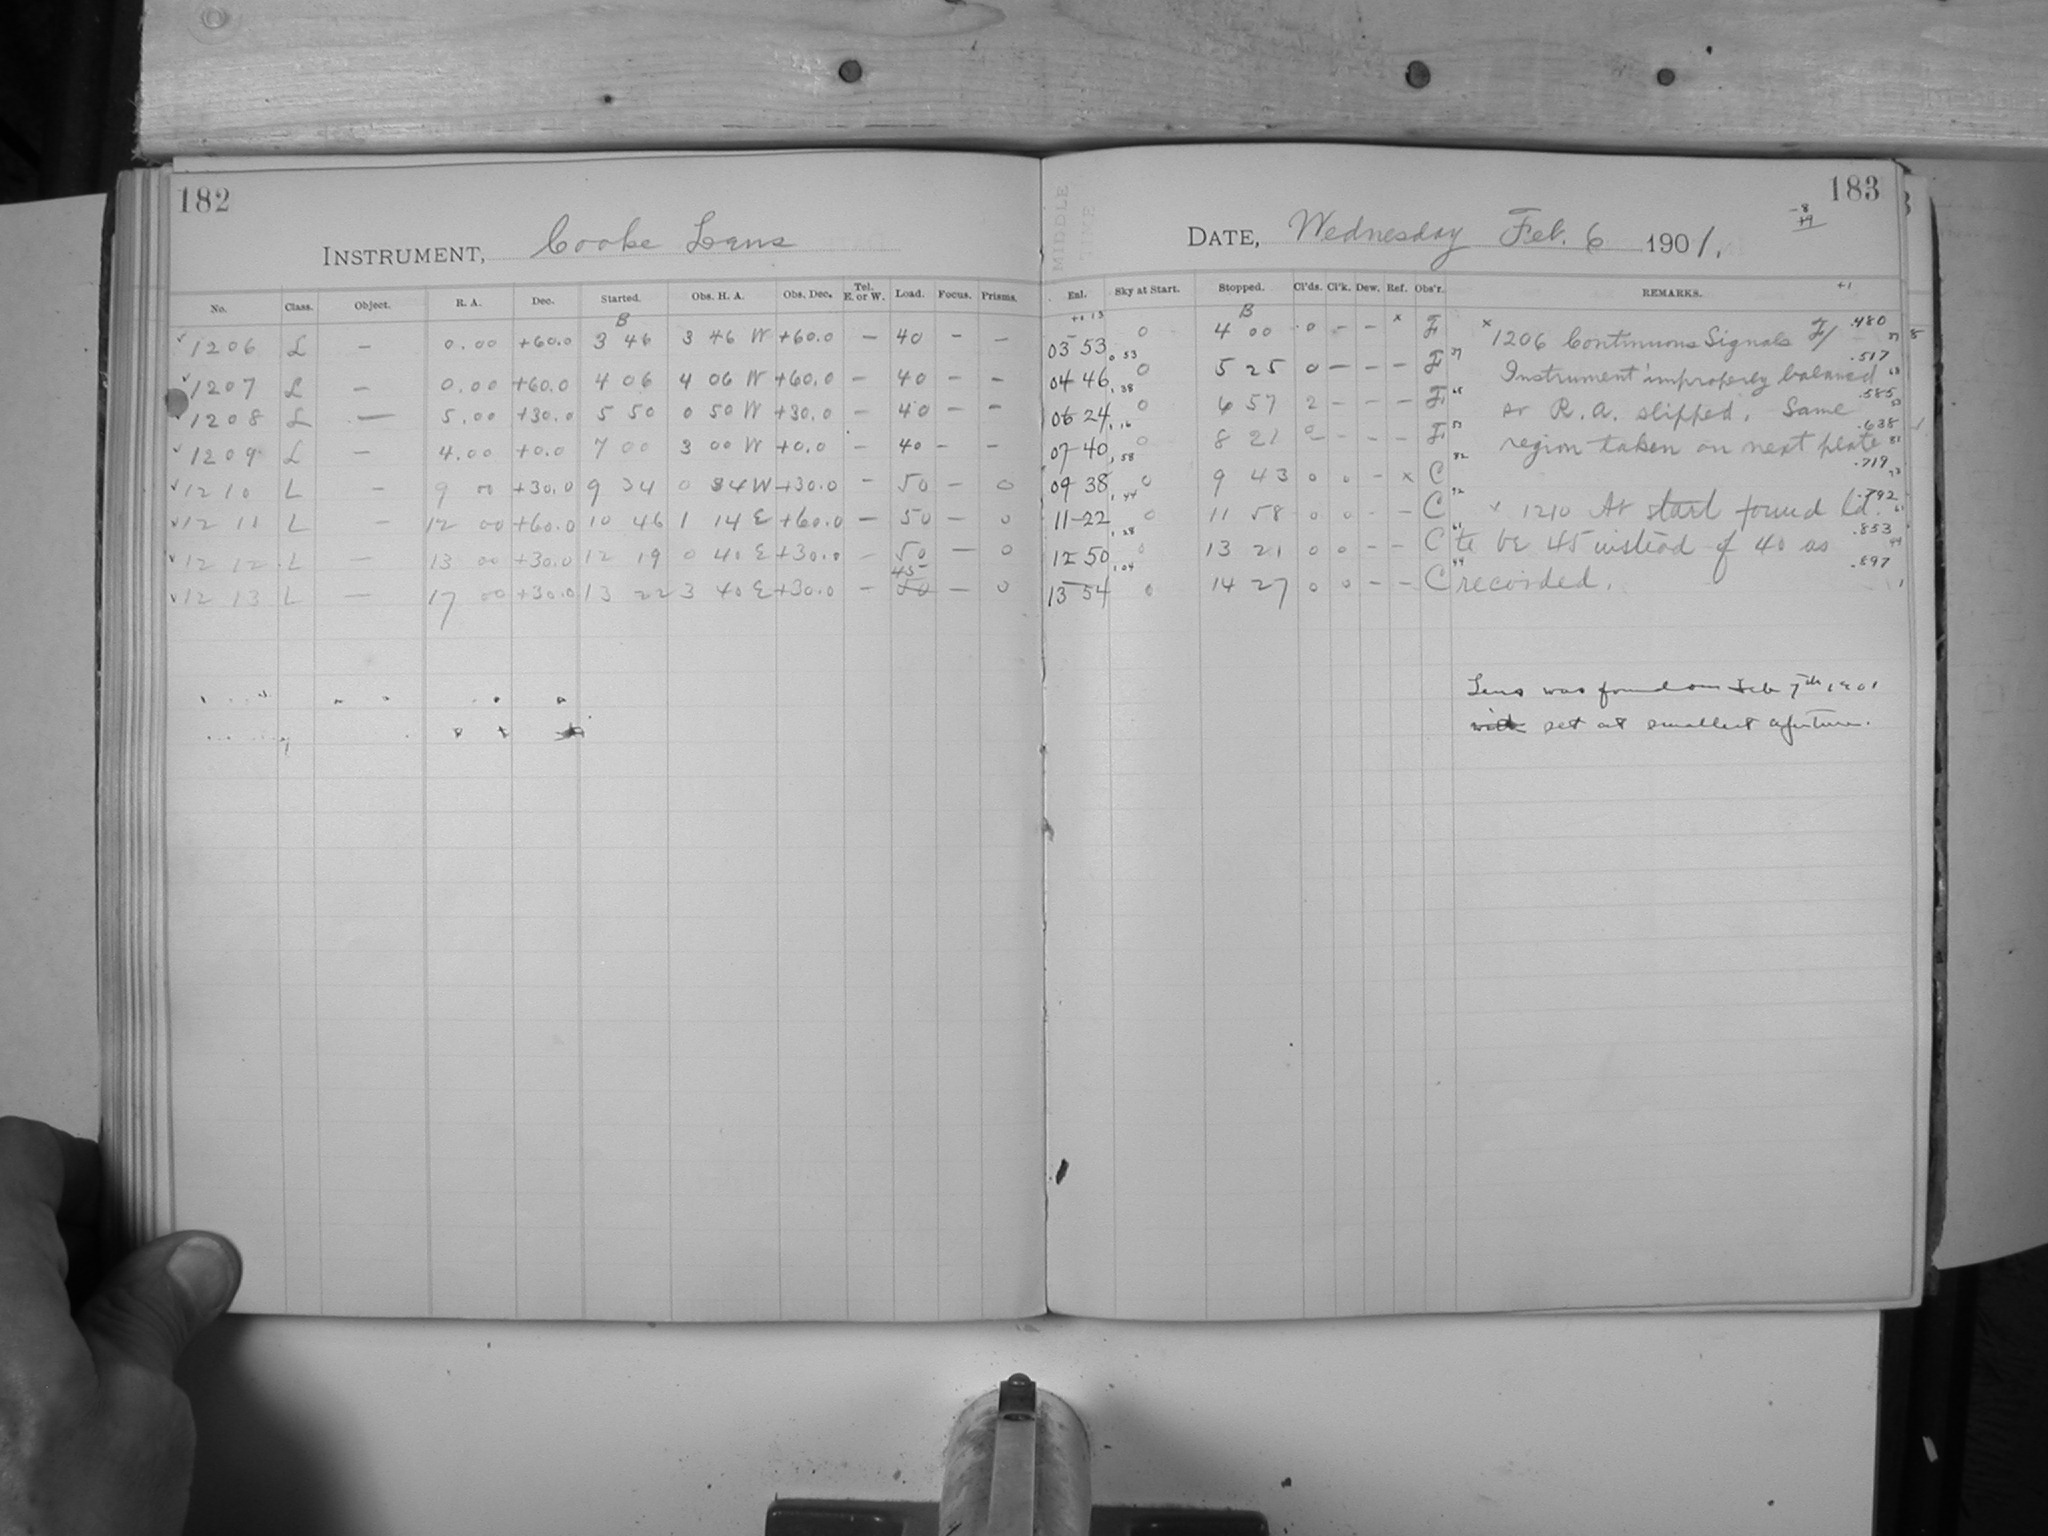 182
INSTRUMENT, Cooke Lens
No. Class. Object. R. A. Dec. Started. Obs. H. A. Obs. Dec. Tel. E. or W. Load. Focus. Prisms.
B
1206 L — 0.00 +60.0 3 46 3 46 W +60.0 — 40 — —
1207 L — 0.00 +60.0 4 06 4 06 W +60.0 — 40 — —
1208 L — 5.00 +30.0 5 50 0 50 W +30.0 — 40 — —
1209 L — 4.00 +0.0 7 00 3 00 W +0.0 — 40 — —
1210 L — 9 00 +30.0 9 34 0 34 W +30.0 — 50 — 0
1211 L — 12 00 +60.0 10 46 1 14 E +60.0 — 50 — 0
1212 L — 13 00 +30.0 12 19 0 40 E +30.0 — 50 — 0
45
1213 L — 17 00 +30.0 13 22 3 40 E +30.0 — 50 — 0
183
-8
DATE, Wednesday Feb. 6 1901.
Enl. Sky at Start. Stopped. Cl'ds. Cl'k. Dew. Ref. Obs'r. REMARKS. +1
B
03 53 .53 0 4 00 0 — — x F x 1206 Continuous Signals F/ .480 37
04 46 .38 0 5 25 0 — — — F 37 Instrument improperly balanced .517 68
06 24 .16 0 6 57 2 — — — F 68 or R.A. slipped. Same .585 53
07 40 .58 0 8 21 0 — — — F 53 region taken on next plate .638 81
09 38 .44 0 9 43 0 0 — x C 82 .719 73
11 22 .28 0 11 58 0 0 — — C 72 x 1210 At start found Ld. .792 61
12 50 .04 0 13 21 0 0 — — C 61 to be 45 instead of 40 as .853 44
13 54 0 14 27 0 0 — — C 44 recorded. .897 1
Lens was found on Feb 7th 1901
set at smallest aperture.